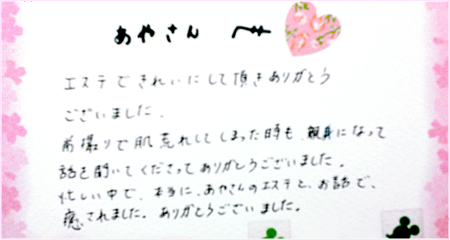 あやさん へ
エステできれいにして頂きありがとう
ございました。
前撮りで肌荒れしてしまった時も、親身になって
話を聞いてくださってありがとうございました。
忙しい中で、本当に、あやさんのエステと、お話で、
癒されました。ありがとうございました。